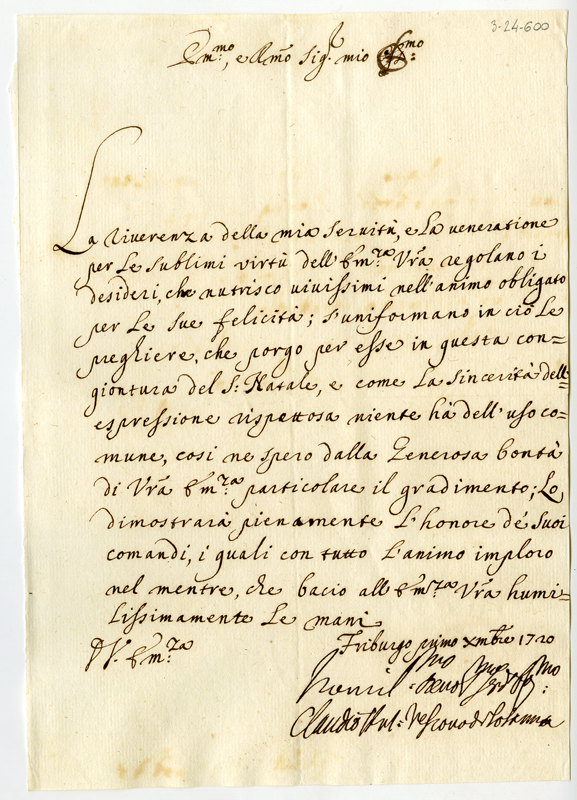 3-24-600
Em.mo, e Rmo Sig.r mio
La riverenza della mia servitù, e La veneratione
per Le sublimi virtù dell'Em.za Vra regolano i
desideri, che nutrisco vivissimi nell'animo obligato
per Le sue felicità; s'uniformano in ciò Le
preghiere, che porgo per esse in questa con=
giontura del S: Natale, e come La sincerità dell'=
espressione rispettosa niente hà dell'uso co=
mune, così ne spero dalla Generosa bontà
di Vra Em.za particolare il gradimento; Lo
dimostrarà pienamente L'honore dé suoi
comandi, i quali con tutto L'animo imploro
nel mentre, che bacio all'Em.za Vra humi=
Lissimamente Le mani
Friburgo primo Xmbre 1720
V. Em.za
Humil.mo
Claudio Ant: Vescovo di Losanna